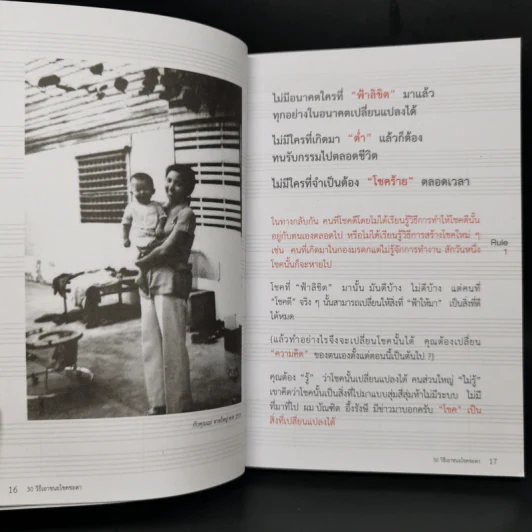 กับคุณแม่
16 30 วิธีเอาชนะโชคชะตา
ไม่มีอนาคตใครที่ "ฟ้าลิขิต" มาแล้ว
ทุกอย่างในอนาคตเปลี่ยนแปลงได้
ไม่มีใครที่เกิดมา "ต่ำ" แล้วก็ต้อง
ทนรับกรรมไปตลอดชีวิต
ไม่มีใครที่จำเป็นต้อง "โชคร้าย" ตลอดเวลา
ในทางกลับกัน คนที่โชคดีโดยไม่ได้เรียนรู้วิธีการทำให้โชคดีนั้น
อยู่กับตนเองตลอดไป หรือไม่ได้เรียนรู้วิธีการสร้างโชคใหม่ ๆ
เช่น คนที่เกิดในกองมรดกแต่ไม่รู้จักการทำงาน สักวันหนึ่ง
โชคนั้นก็จะหายไป
Rule
1
โชคที่ "ฟ้าลิขิต" มานั้น มันดีบ้าง ไม่ดีบ้าง แต่คนที่
"โชคดี" จริง ๆ นั้นสามารถเปลี่ยนให้สิ่งที่ "ฟ้าให้มา" เป็นสิ่งที่ดี
ได้หมด
(แล้วทำอย่างไรจึงจะเปลี่ยนโชคนั้นได้ คุณต้องเปลี่ยน
"ความคิด" ของตนเองตั้งแต่ตอนนี้เป็นต้นไป !)
คุณต้อง "รู้" ว่าโชคนั้นเปลี่ยนแปลงได้ คนส่วนใหญ่ "ไม่รู้"
เขาคิดว่าโชคนั้นเป็นสิ่งที่ไปมาแบบสุ่มสี่สุ่มห้าไม่มีระบบ ไม่มี
ที่มาที่ไป ผม บัณฑิต อึ้งรังษี มีข่าวมาบอกครับ "โชค" เป็น
สิ่งที่เปลี่ยนแปลงได้
30 วิธีเอาชนะโชคชะตา 17